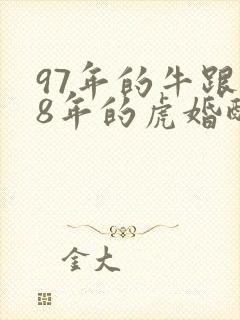 97年的牛跟
8年的虎婚配
金大